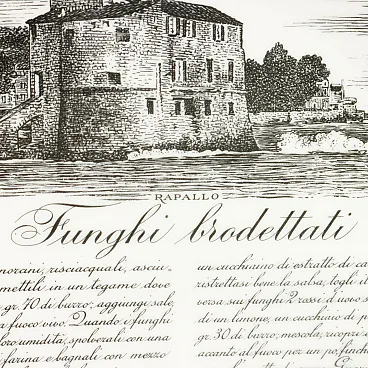 RAPALLO
Funghi brodettati
norcini, risciacquali, asciu-
mettili in un tegame dove
gr. 70 di burro: aggiungi sale,
fuoco vivo. Quando i funghi
loro umidità, spolverali con una
farina e bagnali con mezzo
un cucchiaino di estratto di ca
ristrettasi bene la salsa, togli il
versa sui funghi 2 rossi d'uovo s
di un limone, un cucchiaio di p
gr. 30 di burro, mescola, ricopri e
accanto al fuoco per un po', finché